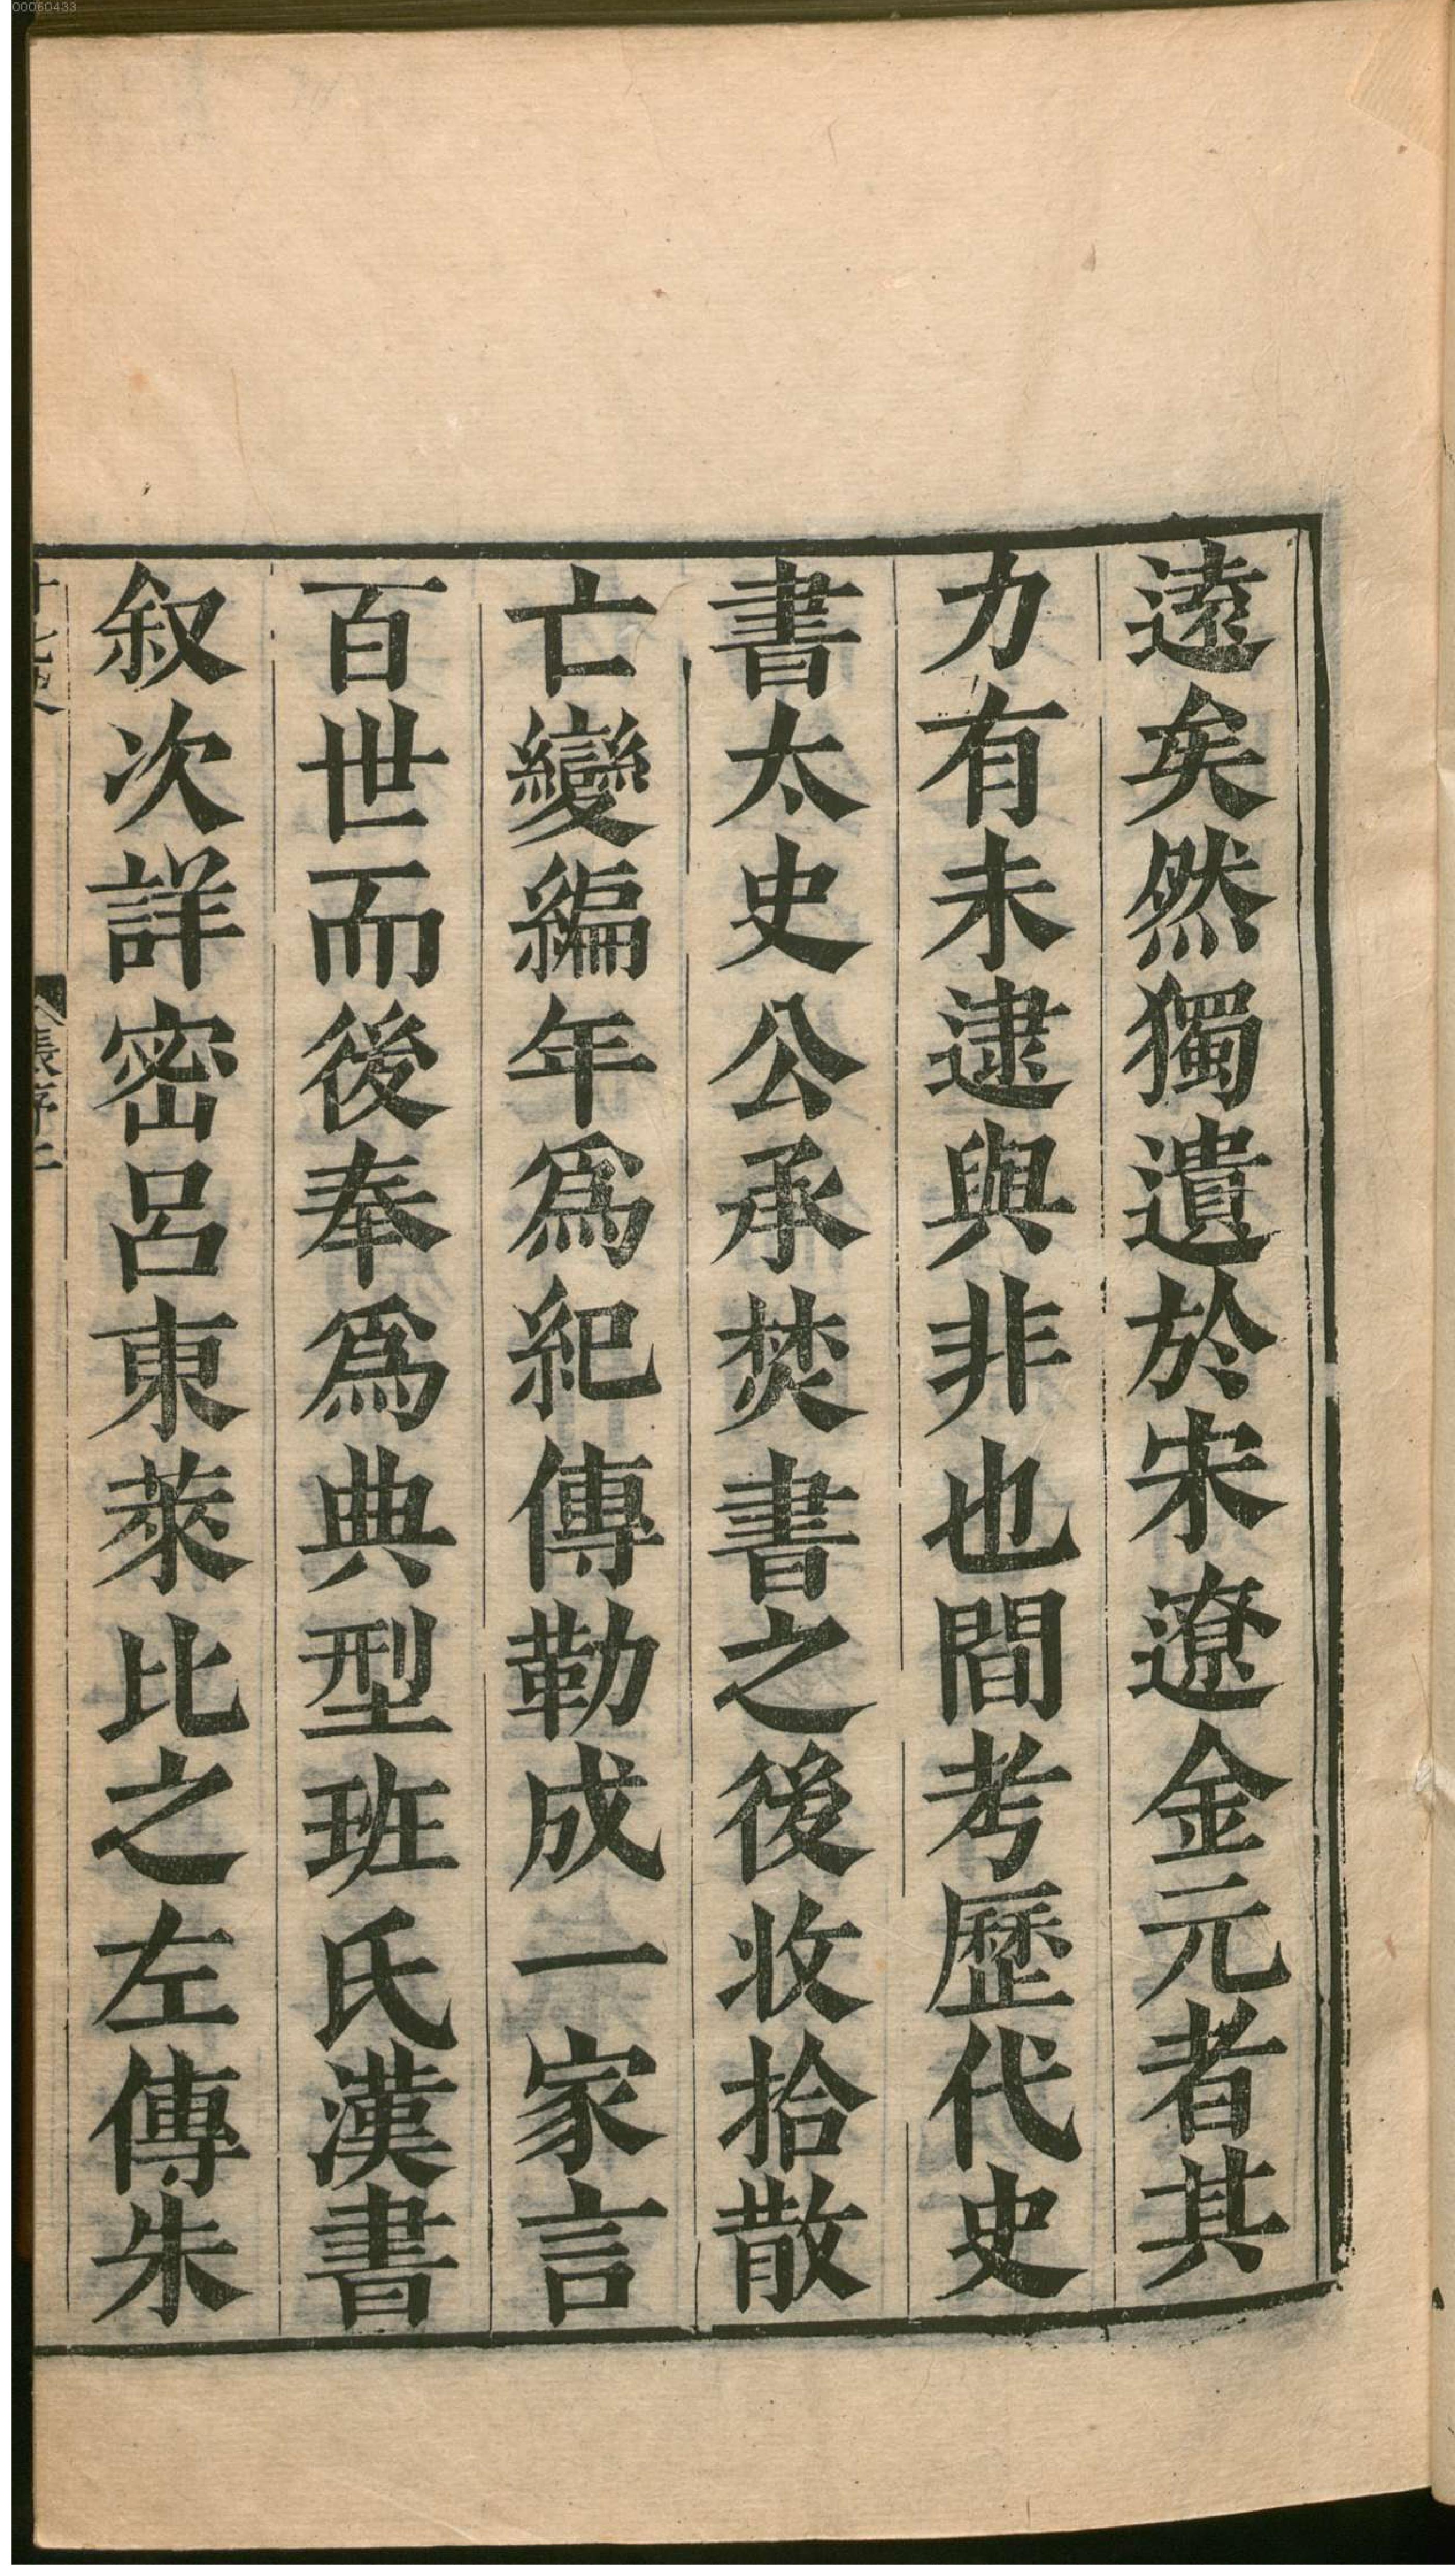 00060433
遠矣然獨遺於宋遼金元者其
力有未逮與非也間考歷代史
書太史公承焚書之後收拾散
亡變編年爲紀傳勒成一家言
百世而後奉爲典型班氏漢書
叙次詳密呂東萊比之左傳朱
張序二